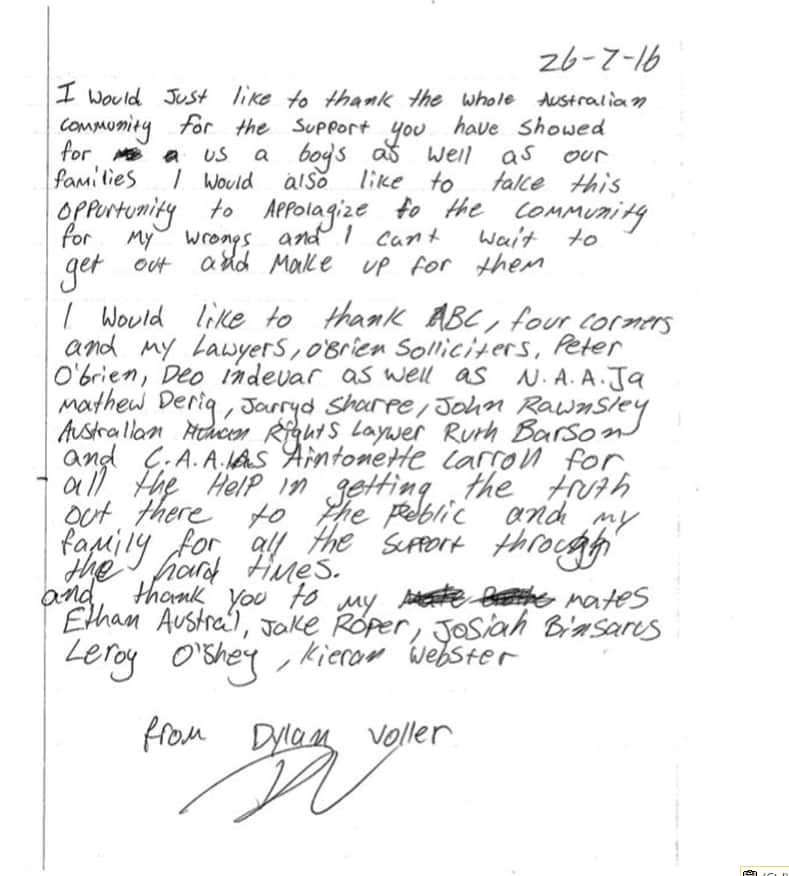 26-7-16
I would Just like to thank the whole Australian
community for the support you have showed
for a us a boy's as well as our
families I would also like to take this
opportunity to Appolagize to the community
for my wrongs and I cant wait to
get out and Make up for them
I would like to thank ABC, four corners
and my Lawyers, O'Brien Solliciters, Peter
O'brien, Deo Indevar as well as N.A.A.Ja
Mathew Derig, Jarryd Sharpe, John Rawnsley
Australian Human Rights Laywer Ruth Barson
and C.A.A.LAS Aintonette Carroll for
all the Help in getting the truth
out there to the public and my
family for all the support through
the hard times.
and thank you to my mates
Ethan Austral, Jake Roper, Josiah Binsarus
Leroy O'Shey, Kieran Webster
from Dylan Voller